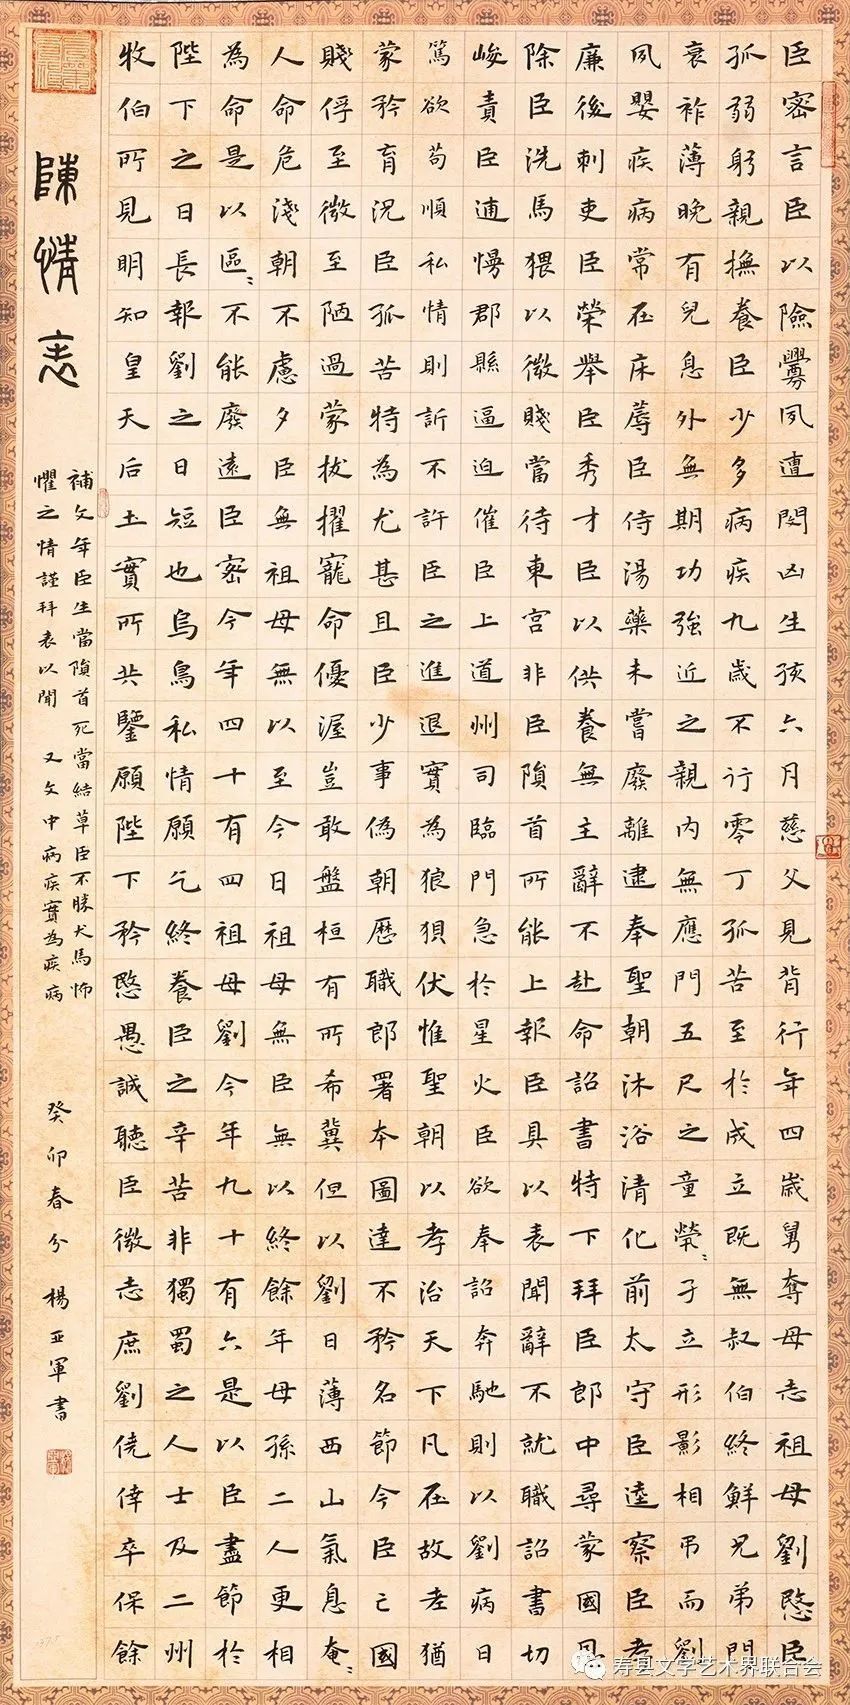 臣密言臣以險釁夙遭閔凶生孩六月慈父見背行年四歲舅奪母志祖母劉愍臣
孤弱躬親撫養臣少多病疾九歲不行零丁孤苦至於成立既無叔伯終鮮兄弟門
衰祚薄晚有兒息外無期功強近之親內無應門五尺之童煢〻孑立形影相弔而劉
夙嬰疾病常在床蓐臣侍湯藥未嘗廢離逮奉聖朝沐浴清化前太守臣逵察臣孝
廉後刺史臣榮舉臣秀才臣以供養無主辭不赴命詔書特下拜臣郎中尋蒙國恩
除臣洗馬猥以微賤當待東宮非臣隕首所能上報臣具以表聞辭不就職詔書切
峻責臣逋慢郡縣逼迫催臣上道州司臨門急於星火臣欲奉詔奔馳則以劉病日
篤欲苟順私情則訴不許臣之進退實為狼狽伏惟聖朝以孝治天下凡在故老猶
蒙矜育況臣孤苦特為尤甚且臣少事偽朝歷職郎署本圖達不矜名節今臣亡國
賤俘至微至陋過蒙拔擢寵命優渥豈敢盤桓有所希冀但以劉日薄西山氣息奄〻
人命危淺朝不慮夕臣無祖母無以至今日祖母無臣無以終餘年母孫二人更相
為命是以區〻不能廢遠臣密今年四十有四祖母劉今年九十有六是以臣盡節於
陛下之日長報劉之日短也烏鳥私情願乞終養臣之辛苦非獨蜀之人士及二州
牧伯所見明知皇天后土實所共鑒願陛下矜愍愚誠聽臣微志庶劉僥倖卒保餘
陳情表
補文年臣生當隕首死當結草臣不勝犬馬怖
懼之情謹拜表以聞 又文中病疾實為疾病
癸卯春分 楊亞軍書
寿县文学艺术界联合会